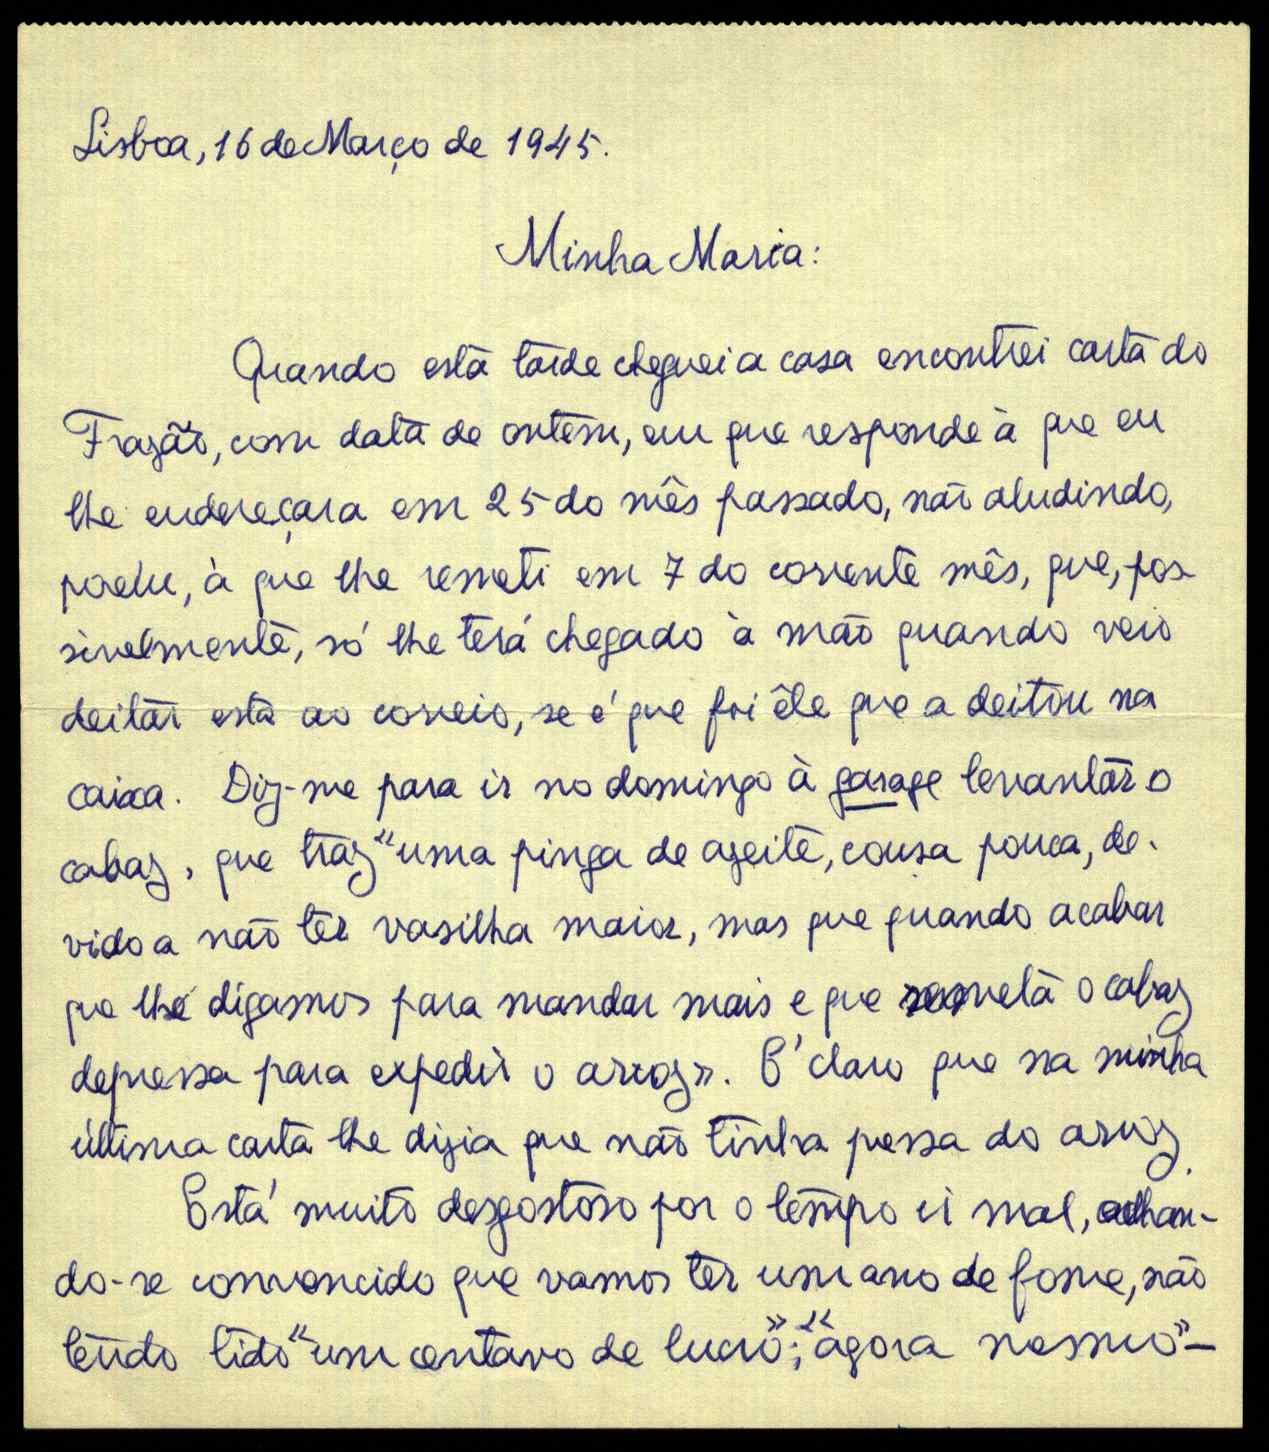 Lisboa, 16 de Março de 1945.
Minha Maria:
Quando esta tarde cheguei a casa encontrei carta do
Frazão, com data de ontem, em que responde à que eu
lhe endereçara em 25 do mês passado, não aludindo,
porém, à que lhe remeti em 7 do corrente mês, que, pos-
sivelmente, só lhe terá chegado à mão quando veio
deitar esta ao correio, se é que foi êle que a deitou na
caixa. Diz-me para ir no domingo à garage levantar o
cabaz, que traz "uma pinga de azeite, cousa pouca, de-
vido a não ter vasilha maior, mas que quando acabar
que lhe digamos para mandar mais e que remeta o cabaz
depressa para expedir o arroz». E' claro que na minha
última carta lhe dizia que não tinha pressa do arroz.
Está muito desgostoso por o tempo ir mal, achan-
do-se convencido que vamos ter um ano de fome, não
tendo tido "um centavo de lucro»; "agora mesmo"—